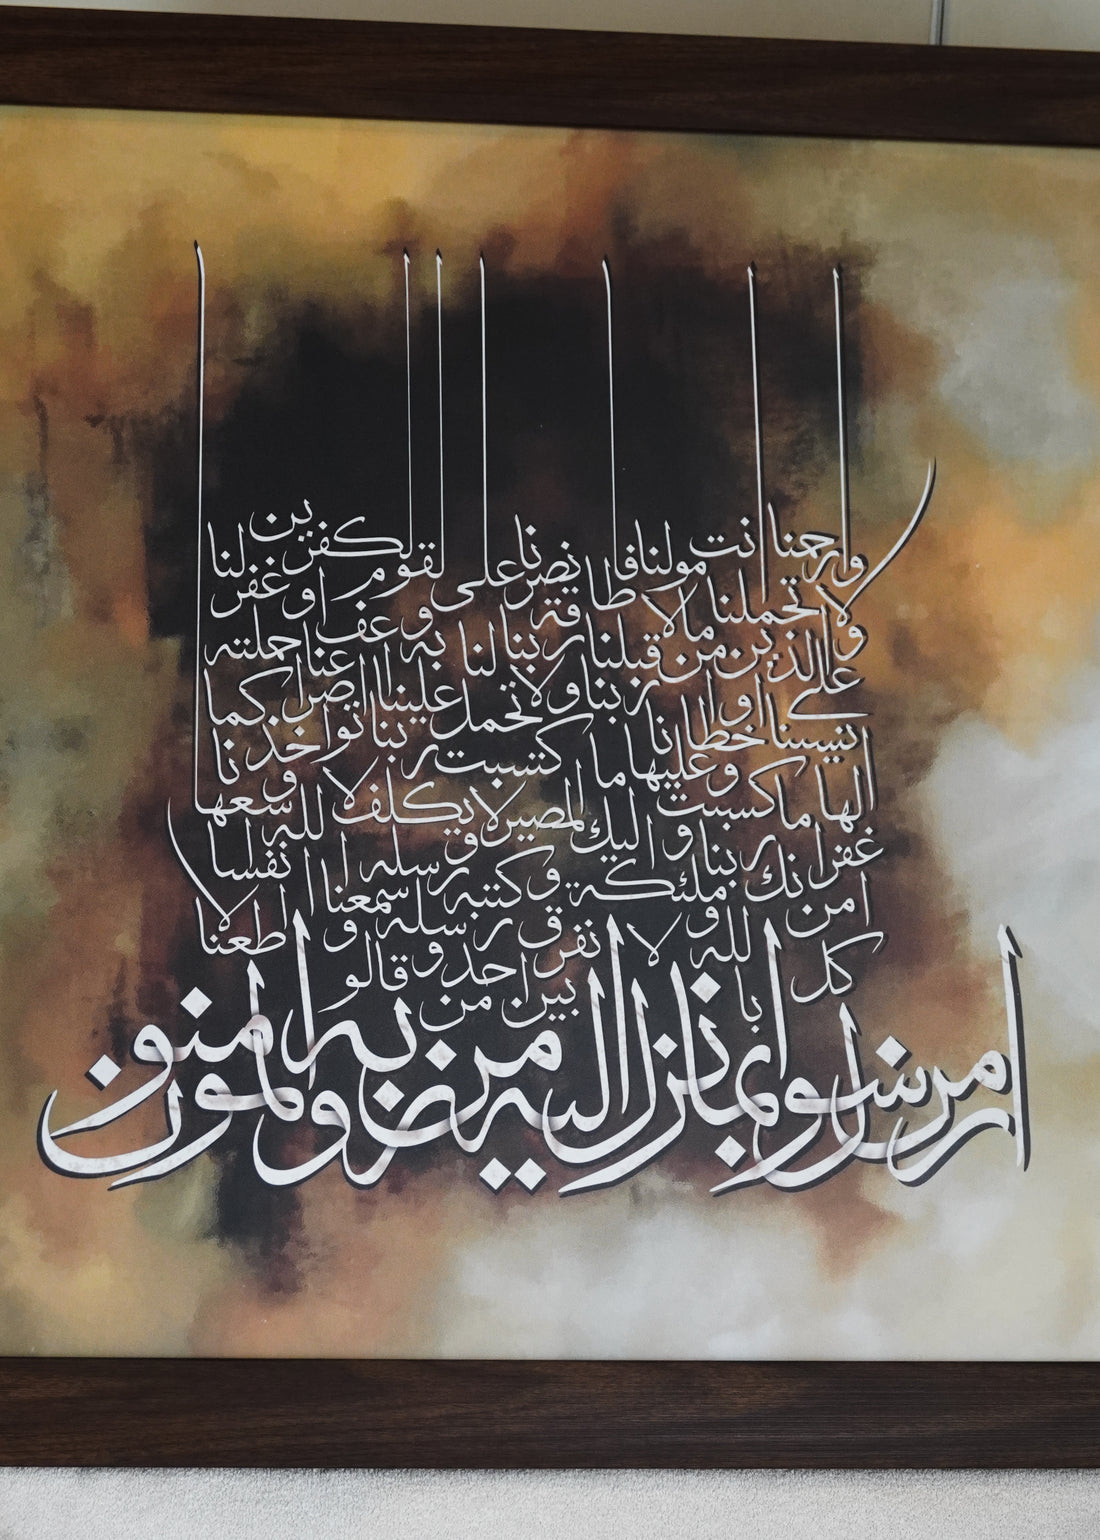 امن الرسول بما انزل اليه من ربه والمومنون
كل امن بالله وملئكته وكتبه ورسله لا نفرق بين احد من رسله وقالوا سمعنا واطعنا
غفرانك ربنا واليك المصير لا يكلف الله نفسا الا وسعها
لها ما كسبت وعليها ما اكتسبت ربنا لا تواخذنا
ان نسينا او اخطانا ربنا ولا تحمل علينا اصرا كما حملته
على الذين من قبلنا ربنا
ولا تحملنا ما لا طاقة لنا به واعف عنا واغفر لنا
وارحمنا انت مولنا فانصرنا على القوم الكفرين